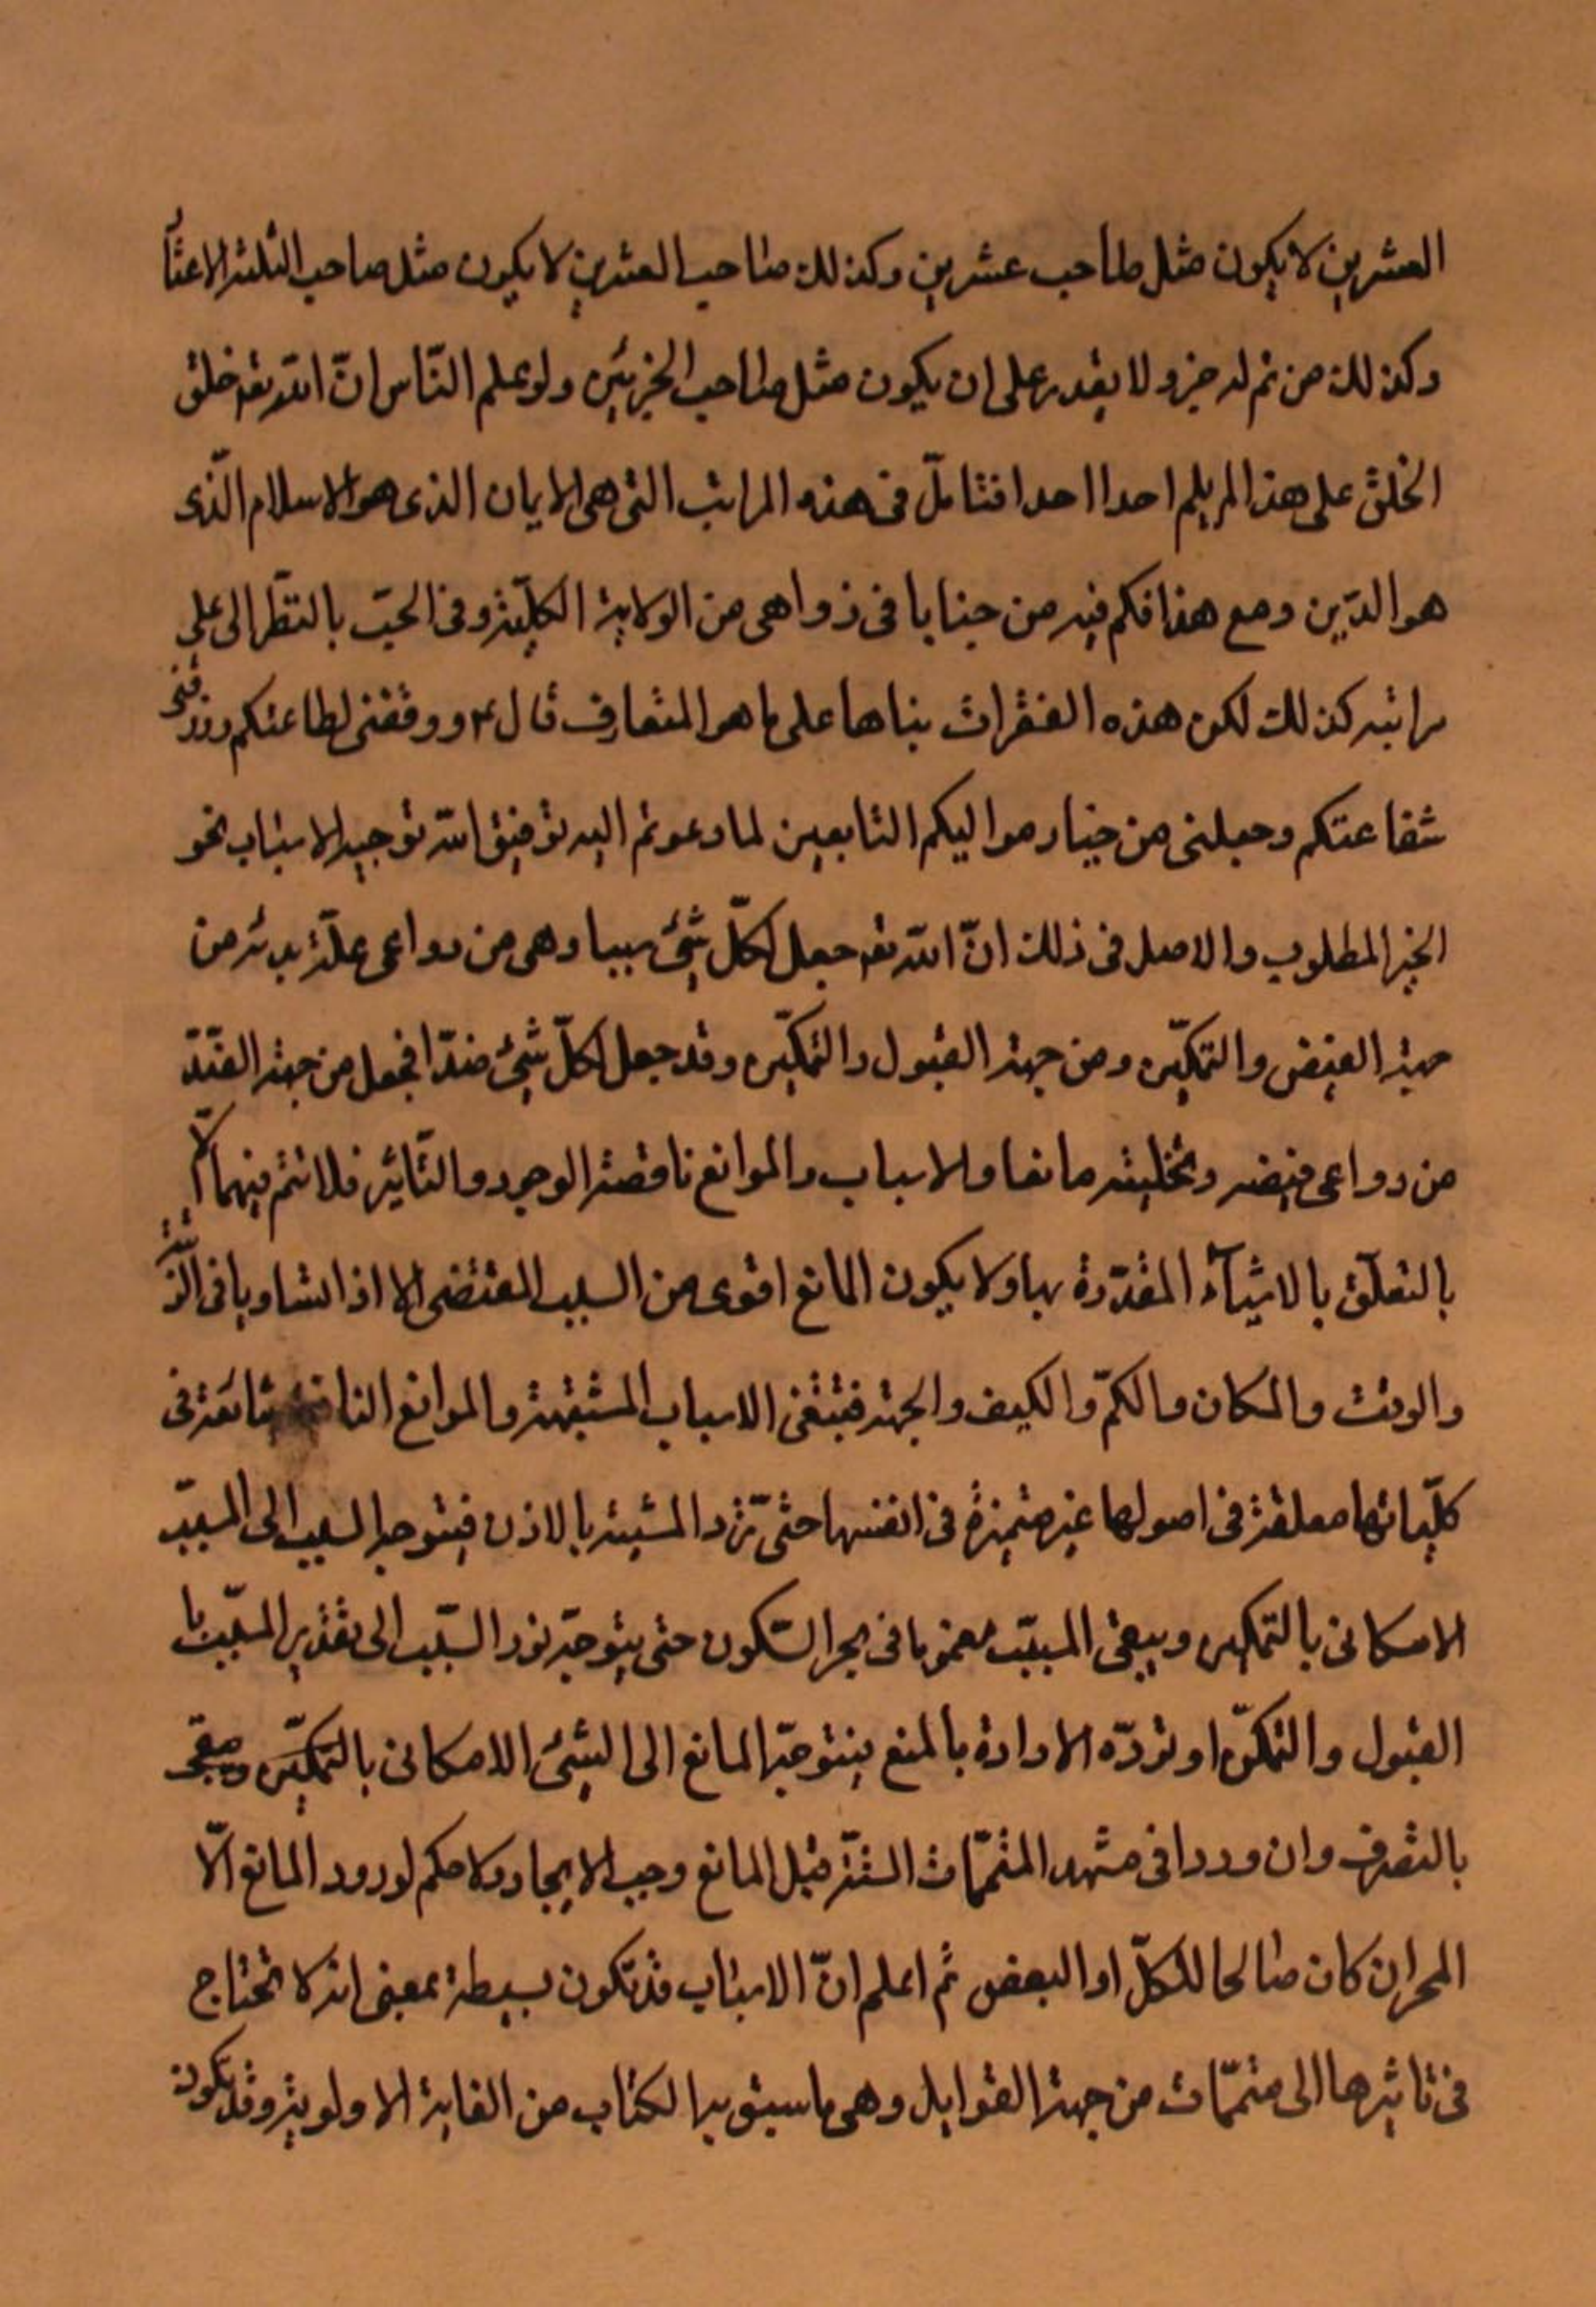 العشرين لا يكون مثل صاحب عشرين وكذلك صاحب العشرين لا يكون مثل صاحب الثلثة الاعشا
وكذلك من تم له جزو لا يقدر على ان يكون مثل صاحب الجزئين ولو علم الناس انّ الله تعه خلق
الخلق على هذا لم يلم احدا احدا فتامّل فى هذه المراتب التى هى الايمان الذى هو الاسلام الّذى
هو الدّين ومع هذا فكم فيه من خبايا فى زواهى من الولاية الكليّة وفى الحبّ بالنّظر الى على
مراتبه كذلك لكن هذه الفقرات بناها على ما هو المتعارف قال ع ووفقنى لطاعتكم ورزقنى
شفاعتكم وجعلنى من خيار مواليكم التابعين لما دعوتم اليه توفيق الله توجيه الاسباب نحو
الخير المطلوب والاصل فى ذلك انّ الله تعه جعل لكلّ شئ سببا وهى من دواعى علّة بدئه من
جهة الفيض والتمكين ومن جهة القبول والتمكين وقد جعل لكلّ شئ ضدّا فجعل من جهة الضّدّ
من دواعى فيضه وتخليته مانعا والاسباب والموانع ناقصة الوجود والتّاثير فلا تتم فيهما الّا
بالتعلّق بالاشيآء المقدّرة بها ولا يكون المانع اقوى من السبب المقتضى الا اذا تساويا فى الرّتبة
والوقت والمكان والكمّ والكيف والجهة فتبقى الاسباب المشتبهة والموانع شائعة فى
كلّياتها معلقة فى اصولها غير متميزة فى انفسها حتّى ترد المشيئة بالاذن فيتوجه السبب الى المسبّب
الامكانى بالتمكين ويبقى المسبّب مغموبا فى بحر السّكون حتى يتوجّه نور السّبب الى تقدير المسبّب با
القبول والتمكّن او تردّه الارادة بالمنع فيتوجّه المانع الى الشئ الامكانى بالتمكين ويبقى
بالتصرف وان وردا فى مشهد المتممّات الستّة قبل المانع وجب الايجاد ولا حكم لورود المانع الّا
المحو ان كان صالحا للكلّ او البعض ثم اعلم انّ الاسباب قد تكون بسيطة بمعنى انه لا تحتاج
فى تاثيرها الى متممّات من جهة القوابل وهى ما سبق به الكتاب من الغاية الاولوية وقد تكون